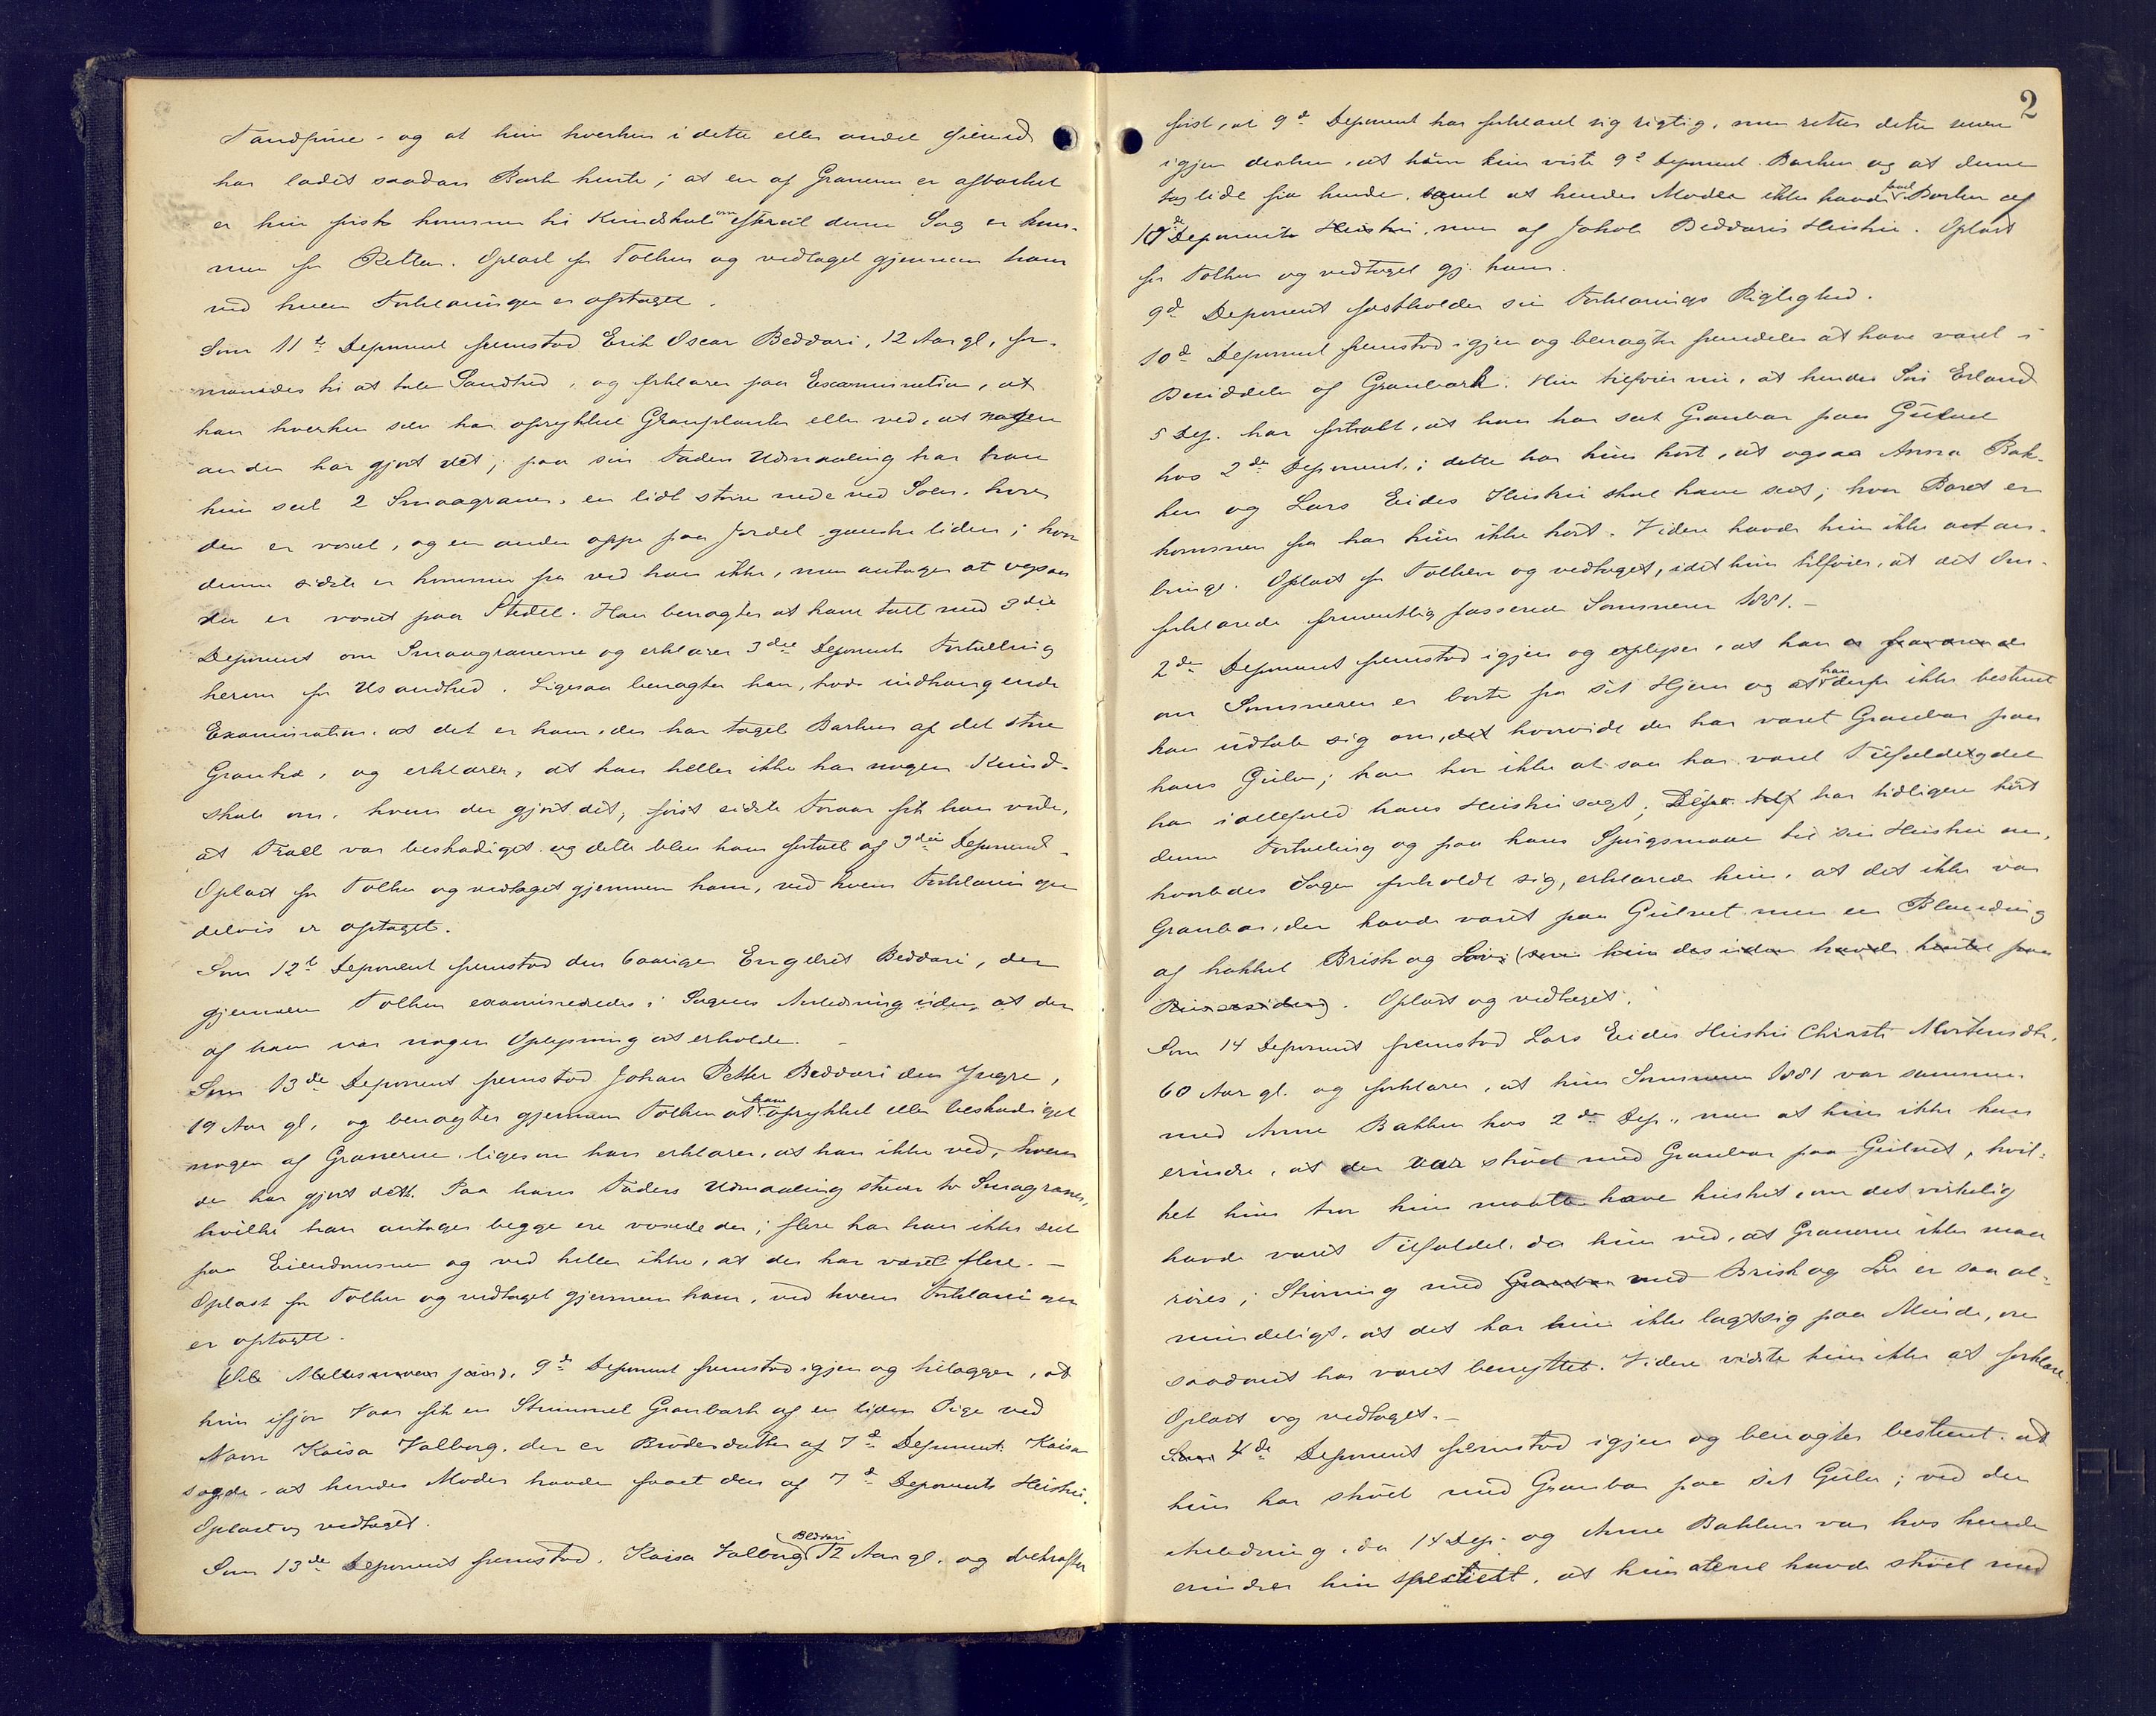 Tandpine og at hun hverken i dette eller andet Øiemed
har ladet saadan Bark hente; at en af Granerne er afbarket
er hun først kommen til Kundskab om efterat denne Sag er kom-
men for Retten. Oplæst for Tolken og vedtaget gjennem ham
ved hvem Forklaringen er optaget.
Som 11te Deponent fremstod Erik Oscar Beddari, 12 Aar gl., for-
manedes til at tale Sandhed, og forklarer paa Examination, at
han hverken selv har oprykket Granplanter eller ved, at nogen
anden har gjort det; paa sin Faders Udmaaling har han
kun seet 2 Smaagraner, en lidt større nede ved Soen, hvor
den er voxet, og en anden oppe paa Jordet ganske liden; hvor
denne sidste er kommen fra ved han ikke, men antager at ogsaa
den er voxet paa Stedet. Han benægter at have talt med 3die
Deponent om Smaagranerne og erklærer 3die Deponents Fortælling
herom for Usandhed. Ligesaa benægter han, trods indtrængende
Examination, at det er ham, der har taget Barken af det store
Grantræ, og erklærer, at han heller ikke har nogen Kund-
skab om, hvem der gjort det, først sidste Foraar fik han vide,
at Træet var beskadiget og dette blev ham fortalt af 3die Deponent.
Oplæst for Tolken og vedtaget gjennem ham, ved hvem Forklaringen
delvis er optaget.
Som 12te Deponent fremstod den 6aarige Engelbret Beddari, der
gjennem Tolken examineredes i Sagens Anledning uden at der
af ham var nogen Oplysning at erholde. –
Som 13de Deponent fremstod Johan Petter Beddari den Yngre,
19 Aar gl. og benægter gjennem Tolken at have oprykket eller beskadiget
nogen af Granerne, ligesom han erklærer, at han ikke ved, hvem
der har gjort dett. Paa hans Faders Udmaaling staar to Smagraner,
hvilke han antager begge ere voxede der; flere har han ikke seet
paa Eiendommen og ved heller ikke, at der har været flere. –
Oplæst for Tolken og vedtaget gjennem ham, ved hvem Forklaringen
er optaget.
9de Deponent fremstod igjen og tillægger, at
hun ifjor Vaar fik en Strimmel Granbark af en liden Pige ved
Navn Kaisa Valborg, der er Broderdatter af 7de Deponent. Kaisa
sagde at hendes Moder havde faaet den af 7de Deponents Hustru.
Oplæst og vedtaget.
Som 13de Deponent fremstod Kaisa Valborg Beddari 12 Aar gl. og bekræfter
2
først, at 9de Deponent har forklaret sig rigtig, men retter dette senere
igjen derhen, at hun kun viste 9de Deponent Barken og at denne
tog lidt fra hende, samt at hendes Moder ikke havde faaet Barken af
10de Deponents Hustru, men af Jakob Beddaris Hustru. Oplæst
for Tolken og vedtaget gj. ham.
9de Deponent fastholder sin Forklarings Rigtighed.
10de Deponent fremstod igjen og benægter fremdeles at have været i
Besiddelse af Granbark. Hun tilføier nu, at hendes Søn Erland
5 Dep. har fortalt, at han har set Granbar paa Gulvet
hos 2den Deponent; dette har hun hørt, at ogsaa Anna Bak-
ken og Lars Eides Hustru skal have set; hvor Baret er
kommen fra har hun ikke hørt. Videre havde hun ikke at an-
bringe. Oplæst for Tolken og vedtaget, idet hun tilføier, at det Om-
forklarede formentlig passerede Sommeren 1881. –
2den Deponent fremstod igjen og oplyser, at han
om Sommeren er borte fra sit Hjem og at han derfor ikke bestemt
kan udtale sig om, det hvorvidt der har været Granbar paa
hans Gulv; han tror ikke at saa har været Tilfældet og det
har iallefald hans Hustru sagt; har tidligere hørt
denne Fortælling og paa hans Spørgsmaal til sin Hustru om,
hvorledes Sagen forholdt sig, erklærede hun, at det ikke var
Granbar, der havde været paa Gulvet men en Blanding
af hakket Brisk og Løv (som hun desuden havde hentet paa
. Oplæst og vedtaget.
Som 14 Deponent fremstod Lars Eides Hustru Chirsti Mortensdtr.
60 Aar gl. og forklarer, at hun Sommeren 1881 var sammen
med Anne Bakken hos 2den Dep., men at hun ikke kan
erindre, at der var strøet med Granbar paa Gulvet, hvil-
ket hun tror hun maatte have husket, om det virkelig
havde været Tilfældet, da hun ved, at Granerne ikke maa
røres; Strøning med Granbar med Brisk og Løv er saa al-
mindeligt, at det har hun ikke lagt sig paa Minde, om
saadant har været benyttet. Videre vidste hun ikke at forklare.
Oplæst og vedtaget. –
Som 4de Deponent fremstod igjen og benægter bestemt, at
hun har strøet med Granbar paa sit Gulv; ved den
Anledning, da 14 Dep. og Anne Bakken var hos hende
erindrer hun specielt, at hun alene havde strøet med